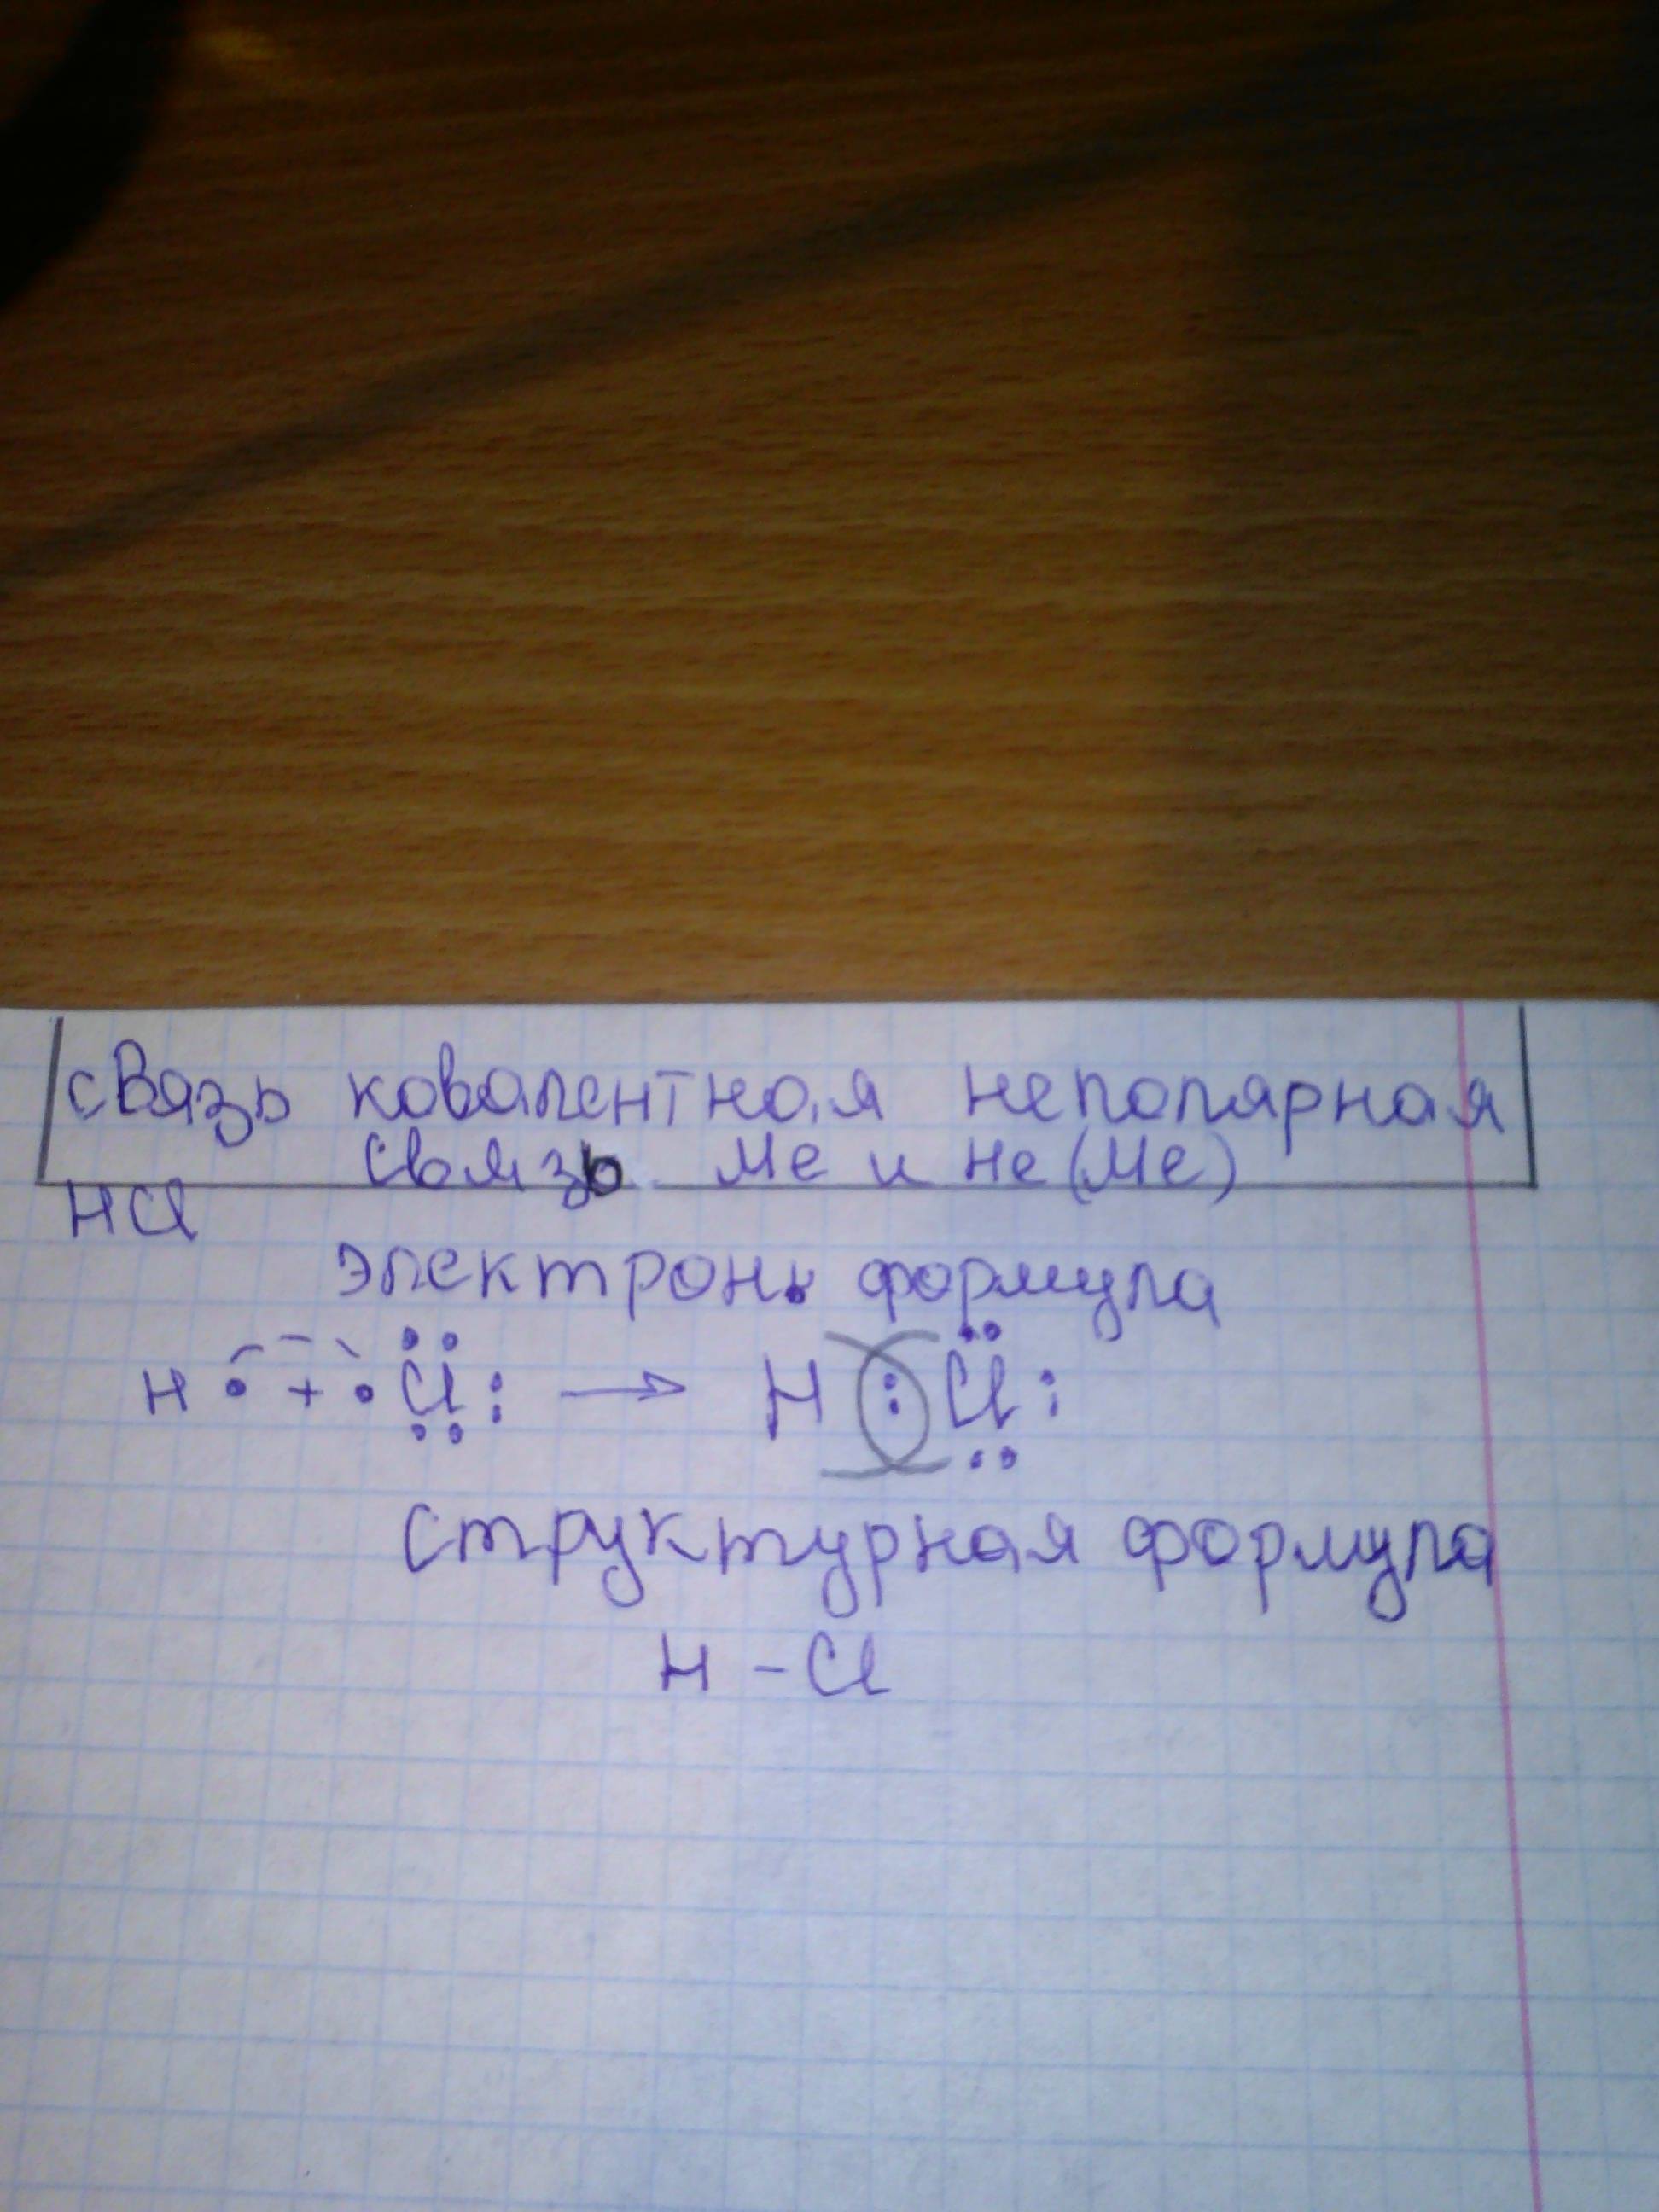 связь ковалентная неполярная
связь Ме и не(Ме)
HCl
электронь формула
H · + · Cl : → H : Cl :
структурная формула
H - Cl